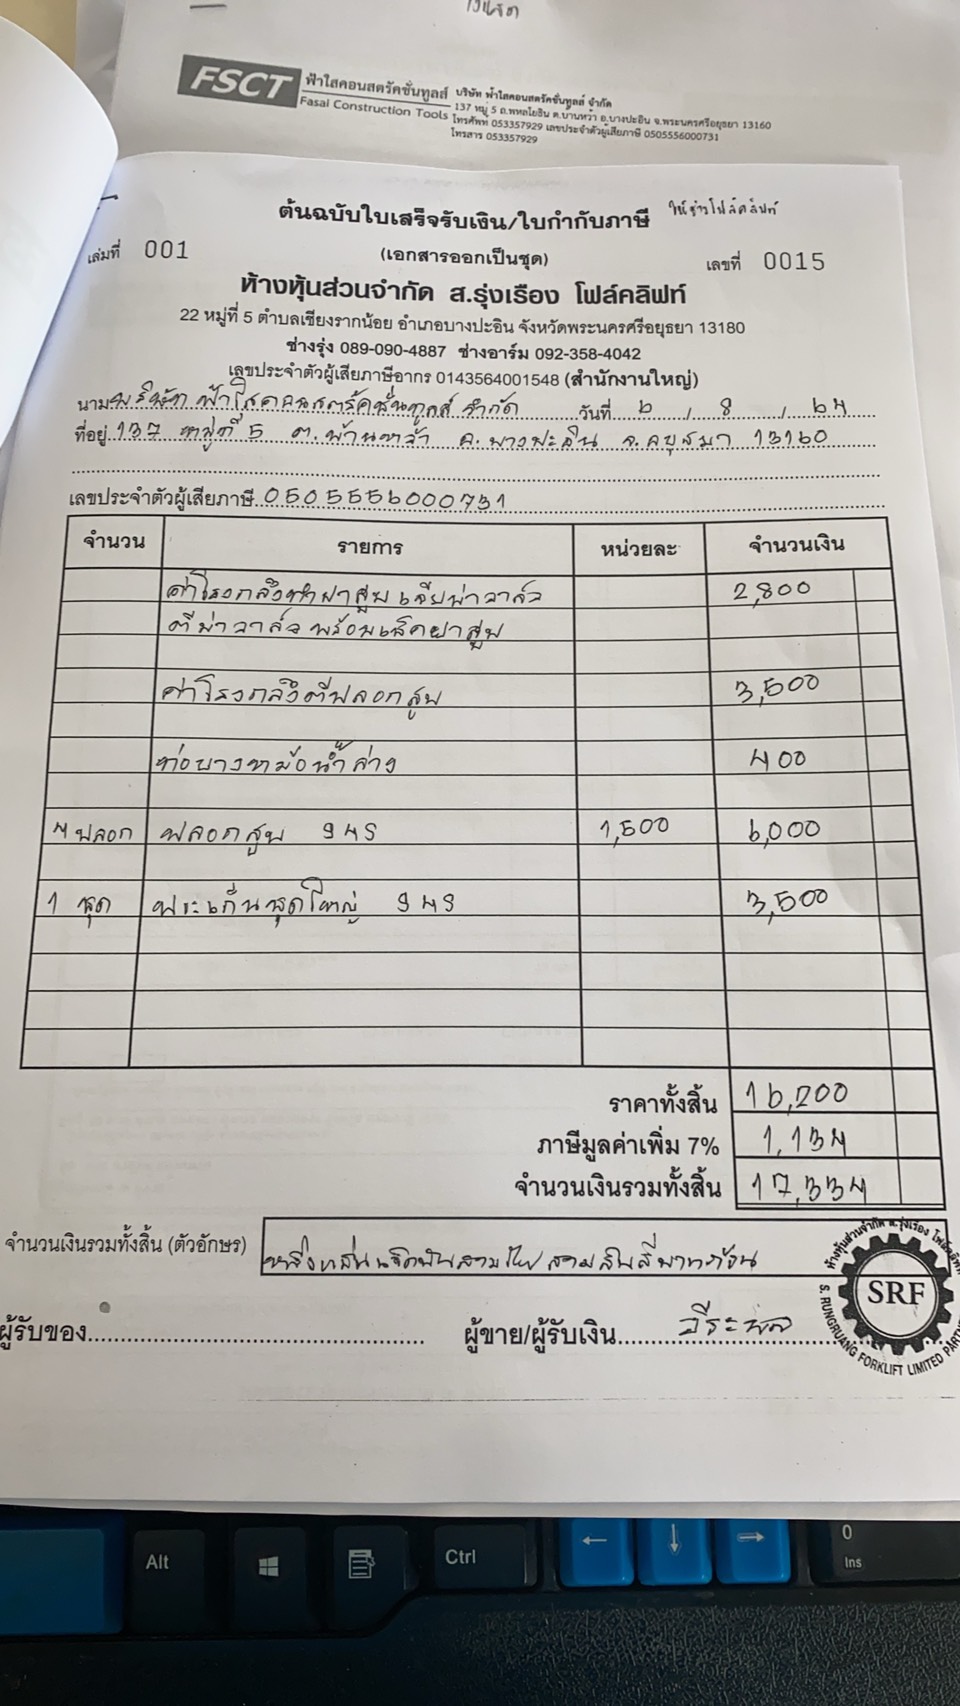 FSCT ฟ้าใสคอนสตรัคชั่นทูลส์ บริษัท ฟ้าใสคอนสตรัคชั่นทูลส์ จำกัด
Fasai Construction Tools 137 หมู่ 5 ถ.พหลโยธิน ต.บ้านหว้า อ.บางปะอิน จ.พระนครศรีอยุธยา 13160
โทรศัพท์ 053357929 เลขประจำตัวผู้เสียภาษี 0505556000731
โทรสาร 053357929
ต้นฉบับใบเสร็จรับเงิน/ใบกำกับภาษี
เล่มที่ 001 (เอกสารออกเป็นชุด) เลขที่ 0015
ห้างหุ้นส่วนจำกัด ส.รุ่งเรือง โฟล์คลิฟท์
22 หมู่ที่ 5 ตำบลเชียงรากน้อย อำเภอบางปะอิน จังหวัดพระนครศรีอยุธยา 13180
ช่างรุ่ง 089-090-4887 ช่างอาร์ม 092-358-4042
เลขประจำตัวผู้เสียภาษีอากร 0143564001548 (สำนักงานใหญ่)
นาม บริษัท ฟ้าใสคอนสตรัคชั่นทูลส์ จำกัด วันที่ 6 / 8 / 64
ที่อยู่ 137 หมู่ที่ 5 ต.บ้านหว้า อ.บางปะอิน จ.อยุธยา 13160
เลขประจำตัวผู้เสียภาษี 0505556000731
จำนวน รายการ หน่วยละ จำนวนเงิน
ค่าโรงกลึงทำฝาสูบ เจียบ่าวาล์ว 2,800
ตีบ่าวาล์ว พร้อมเช็คฝาสูบ
ค่าโรงกลึงตีปลอกสูบ 3,500
ท่อยางหม้อน้ำล่าง 400
4 ปลอก ปลอกสูบ S4S 1,500 6,000
1 ชุด ปะเก็นชุดใหญ่ S4S 3,500
ราคาทั้งสิ้น 16,200
ภาษีมูลค่าเพิ่ม 7% 1,134
จำนวนเงินรวมทั้งสิ้น 17,334
จำนวนเงินรวมทั้งสิ้น (ตัวอักษร) หนึ่งหมื่นเจ็ดพันสามร้อยสามสิบสี่บาทถ้วน
ผู้รับของ ผู้ขาย/ผู้รับเงิน วีระพล
ห้างหุ้นส่วนจำกัด ส.รุ่งเรือง โฟล์คลิฟท์
SRF
S. RUNGRUANG FORKLIFT LIMITED PARTN
Alt Ctrl ← ↓ → 0
Ins